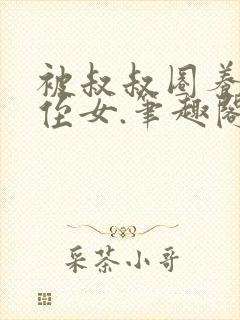 被叔叔圈养
侄女.笔趣阁
采茶小哥